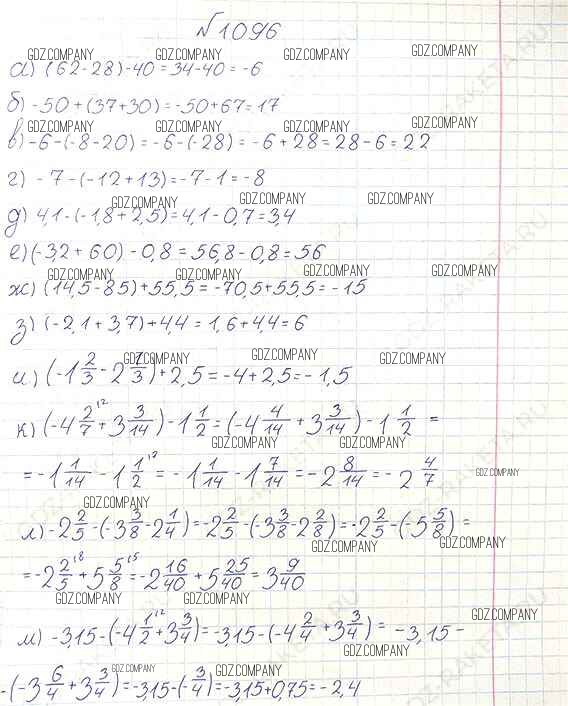 №1096
GDZ.COMPANY GDZ.COMPANY GDZ.COMPANY GDZ.COMPANY
а) (62-28)-40=34-40=-6
б) -50+(37+30)=-50+67=17
GDZ.COMPANY GDZ.COMPANY GDZ.COMPANY GDZ.COMPANY
в) -6-(-8-20)=-6-(-28)=-6+28=28-6=22
г) -7-(-12+13)=-7-1=-8
GDZ.COMPANY GDZ.COMPANY GDZ.COMPANY
д) 4,1-(-1,8+2,5)=4,1-0,7=3,4
е) (-3,2+60)-0,8=56,8-0,8=56
GDZ.COMPANY GDZ.COMPANY GDZ.COMPANY GDZ.COMPANY
ж) (14,5-85)+55,5=-70,5+55,5=-15
з) (-2,1+3,7)+4,4=1,6+4,4=6
GDZ.COMPANY GDZ.COMPANY GDZ.COMPANY
и) (-1 2/3-2 7/3)+2,5=-4+2,5=-1,5
к) (-4 2/7+3 3/14)-1 1/2=(-4 4/14+3 3/14)-1 1/2=
GDZ.COMPANY GDZ.COMPANY
=-1 1/14-1 1/2=-1 1/14-1 7/14=-2 8/14=-2 4/7 GDZ.COMPANY
GDZ.COMPANY
л) -2 2/5-(-3 3/8-2 1/4)=-2 2/5-(-3 3/8-2 2/8)=-2 2/5-(-5 5/8)=
GDZ.COMPANY GDZ.COMPANY
=-2 2/5+5 5/8=-2 16/40+5 25/40=3 9/40
GDZ.COMPANY GDZ.COMPANY GDZ.COMPANY
м) -3,15-(-4 1/2+3 3/4)=-3,15-(-4 2/4+3 3/4)=-3,15-
GDZ.COMPANY GDZ.COMPANY GDZ.COMPANY
-(-3 6/4+3 3/4)=-3,15-(-3/4)=-3,15+0,75=-2,4